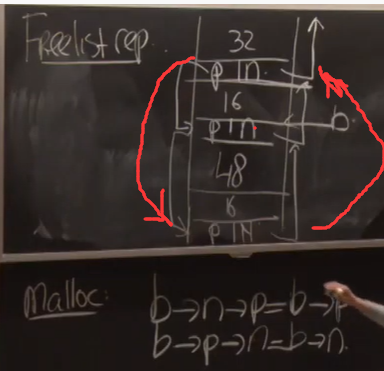 Freelist rep.
32
P | N
16
P | N
b
48
8
P | N
Malloc:
b→n→p=b→p
b→p→n=b→n.